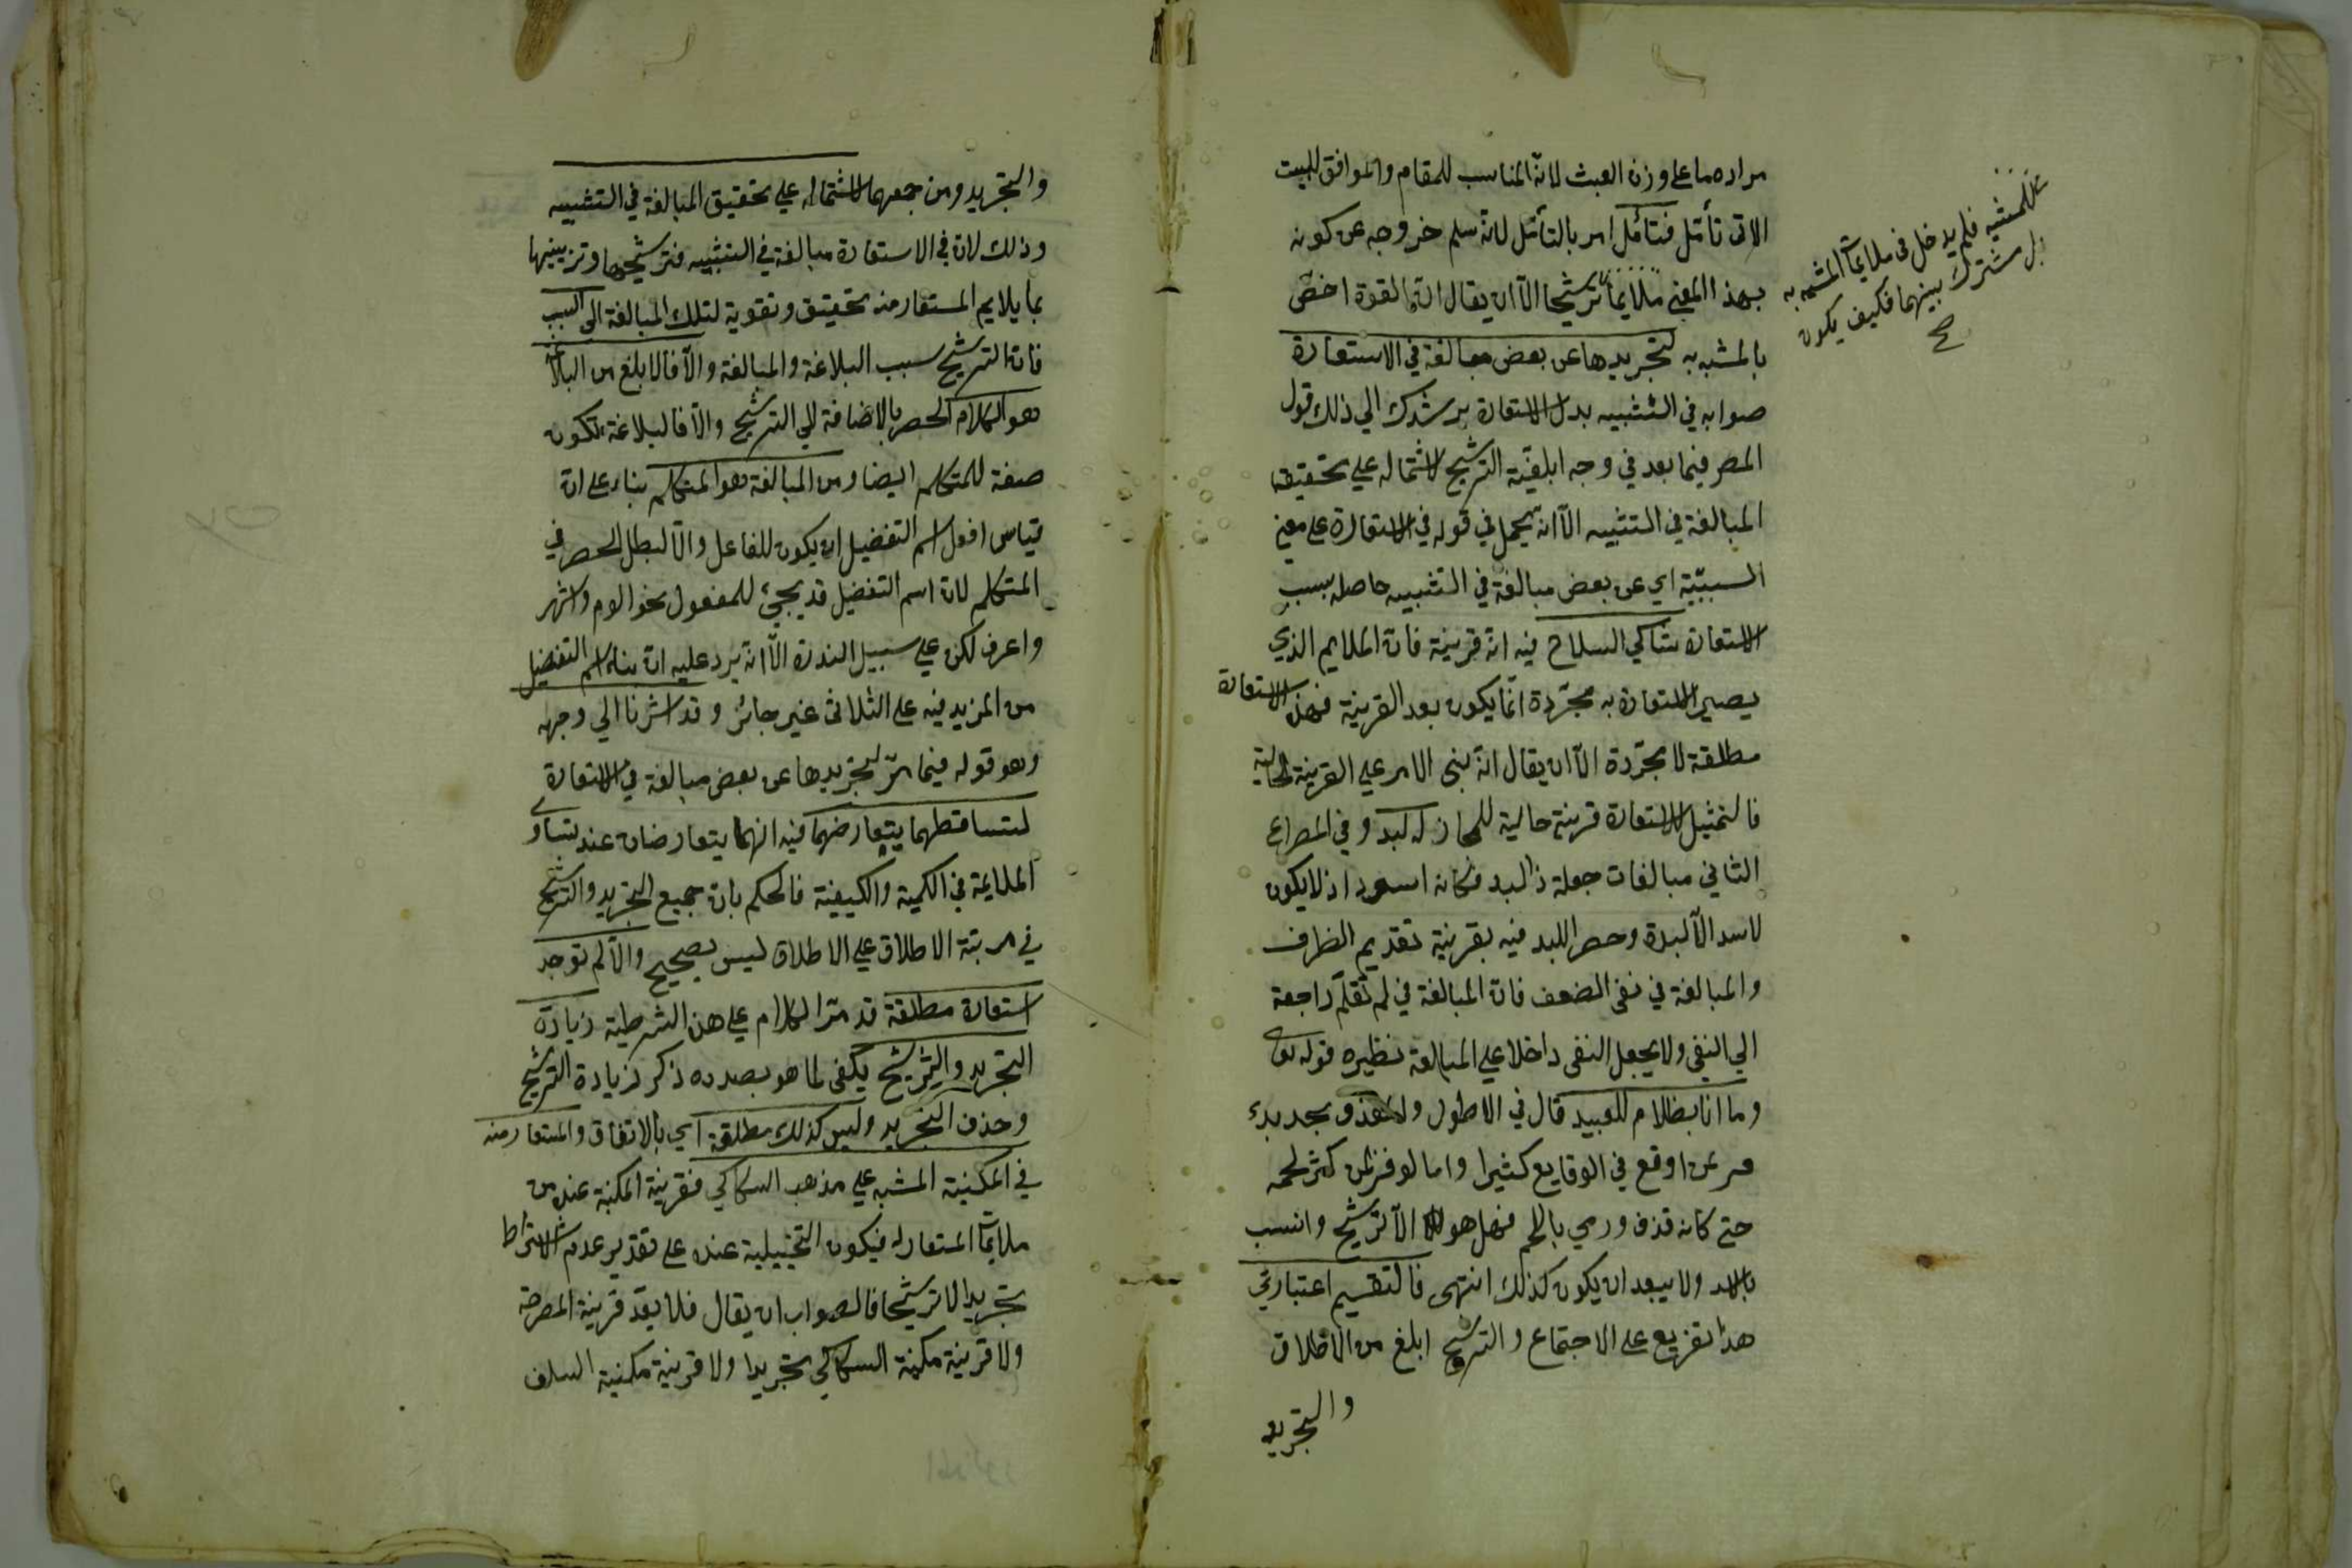 مراده ما على وزن العبث لانّه المناسب للمقام والموافق للبيت
الاتى تأمّل فتأمّل امر بالتأمّل لانه سلم خروجه عن كونه
بهذا المعنى ملايما ترشيحا الّا ان يقال انّ القوة اخصّ
بالمشبه به لتجريدها عن بعض مبالغة في الاستعارة
صوابه في التشبيه بدل الاستعارة يرشدك الي ذلك قول
المصر فيما بعد في وجه ابلغيّة الترشيح لاشتماله علي تحقيق
المبالغة في التشبيه الّا انه يحمل في قوله في الاستعارة على معنى
السببيّة اي عن بعض مبالغة في التشبيه حاصله بسبب
الاستعارة شاكي السلاح فيه انّه قرينة فان الملايم الذي
يصير الاستعارة به مجرّدة انّما يكون بعد القرينة فهذه الاستعارة
مطلقة لا مجرّدة الّا ان يقال انّه بنى الامر علي القرينة الحالية
فالتمثيل للاستعارة قرينة حالية للمجاز له لبد وفي المصراع
الثاني مبالغات جعله ذا لبد فكانه اسود اذ لا يكون
لاسد الّا لبدة وحصر اللبد فيه بقرينة تقديم الظرف
والمبالغة في نفى الضعف فان المبالغة في لم تقلّم راجعة
الي النفى ولا يجعل النفى داخلا علي المبالغة نظيره قوله تعا
وما انا بظلام للعبيد قال في الاطول
من اوقع في الوقايع كثيرا واما لو فرض كثر لحمه
حتى كانه قذف ورمي باللحم فهل هو الّا ترشيح وانسب
بالاسد ولا يبعد ان يكون كذلك انتهى فالتقسيم اعتباري
هذا تفريع على الاجتماع والترشيح ابلغ من الاطلاق
والتجريد
فلم يدخل فى ملايمات المشبه به
بل مشترك بينهما فكيف يكون
صح
والتجريد ومن جمعهما لاشتماله علي تحقيق المبالغة في التشبيه
وذلك لان في الاستعارة مبالغة في التشبيه فترشيحها وتزيينها
بما يلايم المستعار منه تحقيق وتقوية لتلك المبالغة الى السبب
فان الترشيح سبب البلاغة والمبالغة والّا فالابلغ من البلاغة
هو الكلام الحصر بالاضافة الي الترشيح والّا فالبلاغة تكون
صفة للمتكلم ايضا ومن المبالغة هو المتكلم بناء على انّ
قياس افعل اسم التفضيل ان يكون للفاعل والّا لبطل الحصر في
المتكلم لان اسم التفضيل قد يجيئ للمفعول نحو الوم واشهر
واعرف لكن علي سبيل الندرة الّا انه يرد عليه ان بناء اسم التفضيل
من المزيد فيه على الثلاثى غير جائز وقد اشرنا الي وجهه
وهو قوله فيما مرّ لتجريدها عن بعض مبالغة في الاستعارة
لتساقطهما بتعارضهما فيه انهما يتعارضان عند تساوى
الملايمة في الكمية والكيفية فالحكم بان جميع التجريد والترشيح
في مرتبة الاطلاق علي الاطلاق ليس بصحيح والّا لم توجد
استعارة مطلقة قد مرّ الكلام علي هذه الشرطية زيادة
التجريد والترشيح يكفى لما هو بصدده ذكر زيادة الترشيح
وحذف التجريد وليس كذلك مطلقة اي بالاتفاق والمستعار منه
في المكنية المشبه علي مذهب السكاكي فقرينة المكنية عنده من
ملايمات المستعار له فيكون التخييلية عنده على تقدير عدم الاشتراط
تجريدا لا ترشيحا فالصواب ان يقال فلا يعدّ قرينة المصرحة
ولا قرينة مكنية السكاكي تجريدا ولا قرينة مكنية السلف